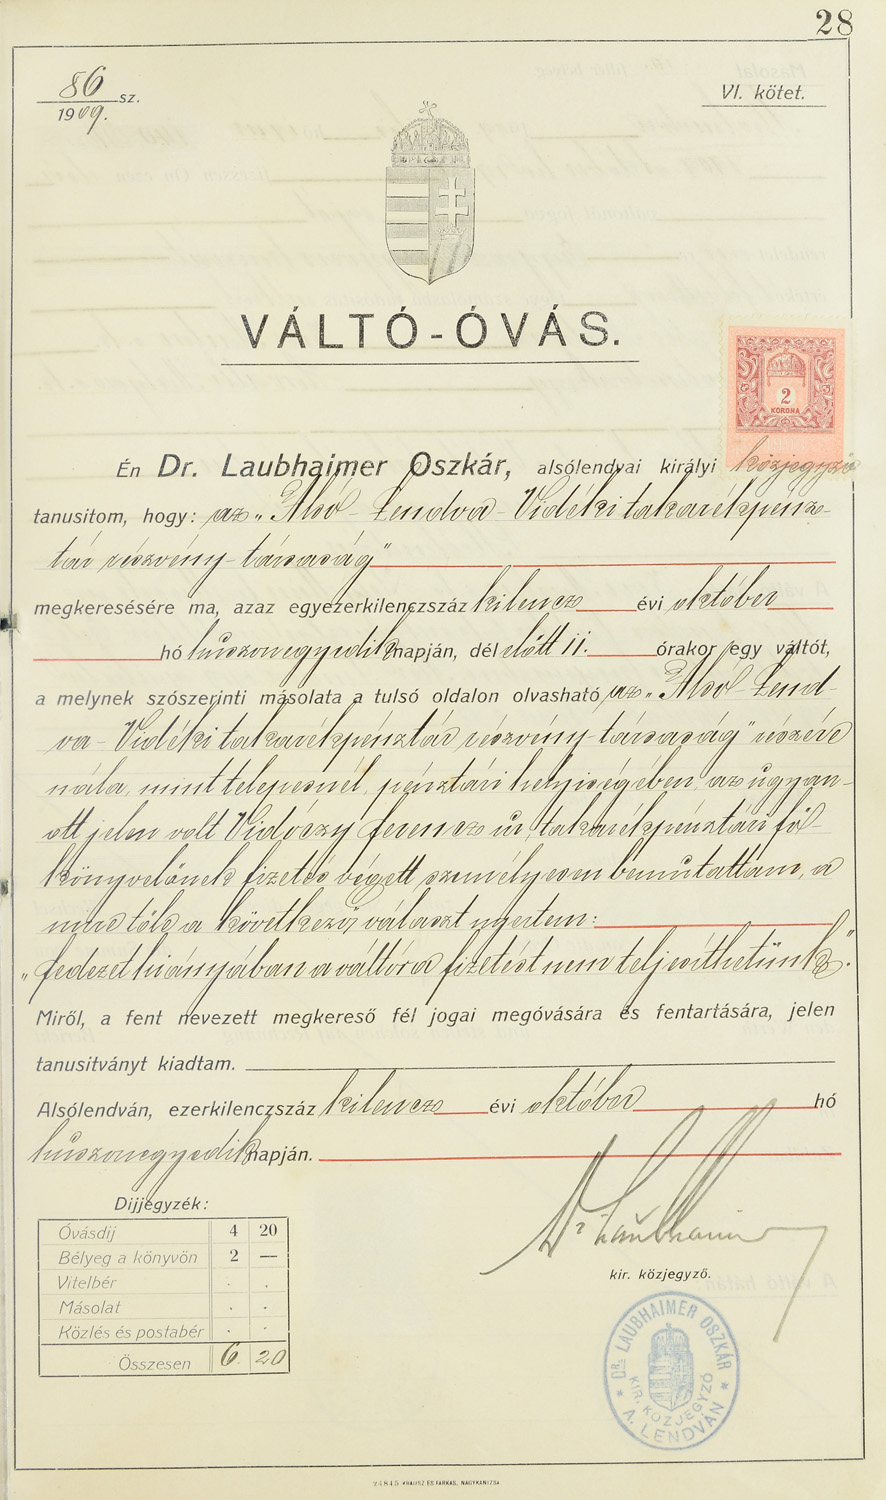 28
86 sz.
1909.
VI. kötet.
VÁLTÓ-ÓVÁS.
2
KORONA
Én Dr. Laubhaimer Oszkár, alsólendvai királyi közjegyző
tanusitom, hogy: az „Alsó-Lendva-Vidéki takarékpénz-
tár részvény-társaság"
megkeresésére ma, azaz egyezerkilenczszáz kilencz évi október
hó huszonegyedik napján, dél előtt 11. órakor egy váltót,
a melynek szószerinti másolata a tulsó oldalon olvasható az „Alsó-Lend-
va-Vidéki takarékpénztár részvény-társaság" részére
nála, mint telepesnél, pénztári helyiségében, az ugyan-
ott jelen volt Vidóczy Ferencz úr, takarékpénztári fő-
könyvelőnek fizetés végett személyesen bemutattam, a
mire tőle a következő választ nyertem:
„fedezet hiányában a váltóra fizetést nem teljesíthetünk."
Miről, a fent nevezett megkereső fél jogai megóvására és fentartására, jelen
tanusitványt kiadtam.
Alsólendván, ezerkilenczszáz kilencz évi október hó
huszonegyedik napján.
Dr Laubhaimer
kir. közjegyző.
Dijjegyzék:
Óvásdij 4 20
Bélyeg a könyvön 2 —
Vitelbér . .
Másolat . .
Közlés és postabér . .
Összesen 6 20
DR. LAUBHAIMER OSZKÁR
KIR. KÖZJEGYZŐ
A. LENDVÁN
24845 KRAUSZ ÉS FARKAS, NAGYKANIZSA